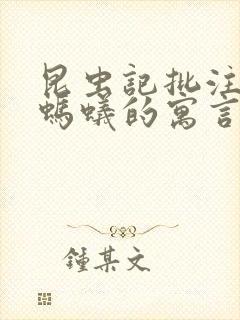 昆虫記批注
螞蟻的寓言
鍾某文